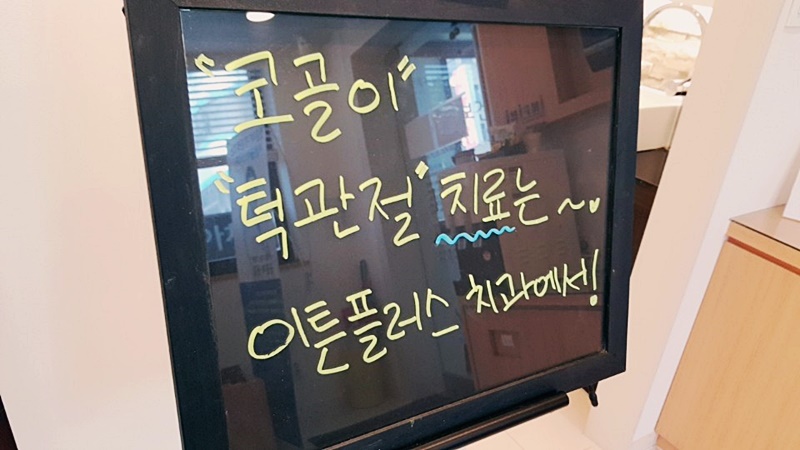 "코골이"
"턱관절" 치료는~.
이튼플러스 치과에서!